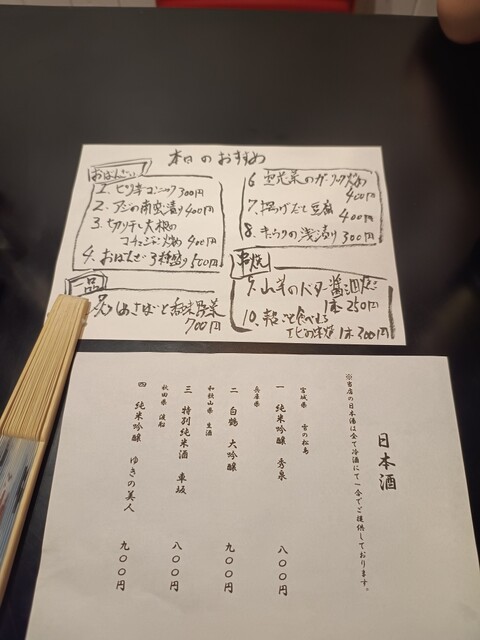 本日のおすすめ
おばんざい
1. ピリ辛コンニャク 300円
2. アジの南蛮漬け 400円
3. 切り干し大根の
コチュジャン炒め 400円
4. おばんざい3種盛り 500円
一品
しめさばと香味野菜
700円
6 空芯菜のガーリック炒め
400円
7. 揚げだし豆腐
400円
8. キュウリの浅漬け 300円
串焼
9. 山芋のバター醤油
1本250円
10. 殻ごと食べれる
エビの串焼 1本300円
日本酒
※当店の日本酒は全て冷酒にて一合でご提供しております。
宮城県 雪の松島
一 純米吟醸 秀泉 八〇〇円
兵庫県
二 白鶴 大吟醸 九〇〇円
和歌山県 生酒
三 特別純米酒 車坂 八〇〇円
秋田県
四 純米吟醸 ゆきの美人 九〇〇円